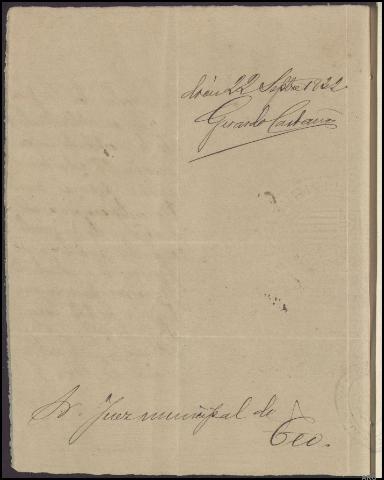 22 Sepbre 1922
Gerardo Castaño
Sr. Juez municipal de
Teo.